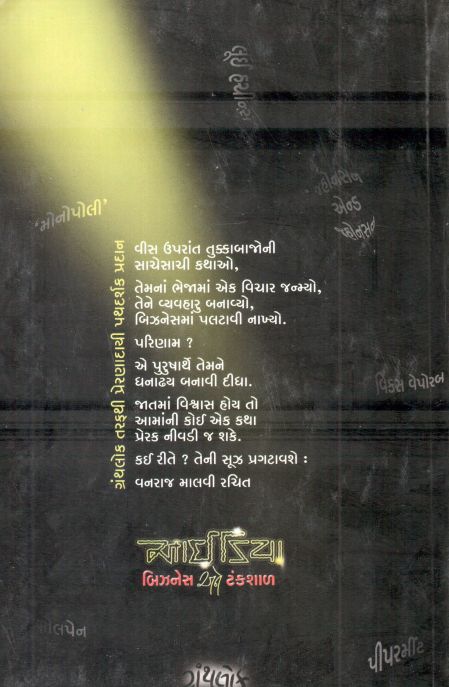 લૂઈ હચીન્સ
જ્હોનસન
એન્ડ
જ્હોનસન
'મોનોપોલી'
ગ્રંથલોક તરફથી પ્રેરણાદાયી પથદર્શક પ્રદાન
વીસ ઉપરાંત તુક્કાબાજોની
સાચેસાચી કથાઓ,
તેમનાં ભેજામાં એક વિચાર જન્મ્યો,
તેને વ્યવહારુ બનાવ્યો,
બિઝનેસમાં પલટાવી નાખ્યો.
પરિણામ ?
એ પુરુષાર્થે તેમને
ધનાઢ્ય બનાવી દીધા.
જાતમાં વિશ્વાસ હોય તો
આમાંની કોઈ એક કથા
પ્રેરક નીવડી જ શકે.
કઈ રીતે ? તેની સૂઝ પ્રગટાવશે :
વનરાજ માલવી રચિત
વિક્સ વેપોરબ
આઈડિયા
બિઝનેસ અને ટંકશાળ
બોલપેન
પીપરમીંટ
ગ્રંથલોક